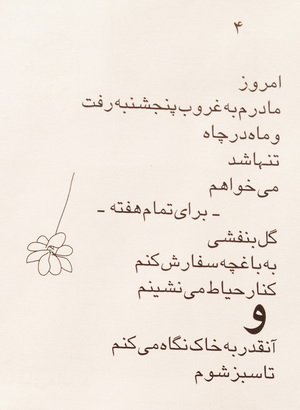 ۴
امروز
مادرم به غروب پنجشنبه رفت
و ماه در چاه
تنها شد
می‌خواهم
ـ برای تمام هفته ـ
گل بنفشی
به باغچه سفارش کنم
کنار حیاط می‌نشینم
و
آنقدر به خاک نگاه می‌کنم
تا سبز شوم